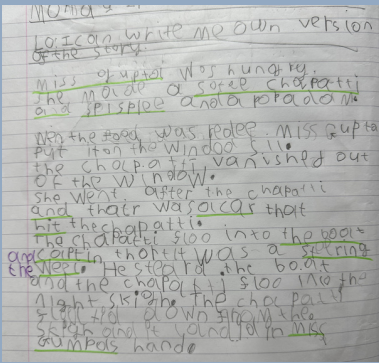 LO: I can write me own version
of the story.
Miss Gupta Was hungry.
She made a sofee chapatti
and spisplee and a popadom.
Wen the food was redee. Miss Gupta
put it on the windoo sill.
the chapatti vanished out
OF the window.
She went after the chapatti
and thair was a car that
hit the chapatti.
The chapatti floo into the boat
and captin thort it was a steering
the weel. He steard the bo.at
and the chapatti floo into the
night skigh. The chapatti
down from the
skigh and it landid in miss
Gumpas hand.